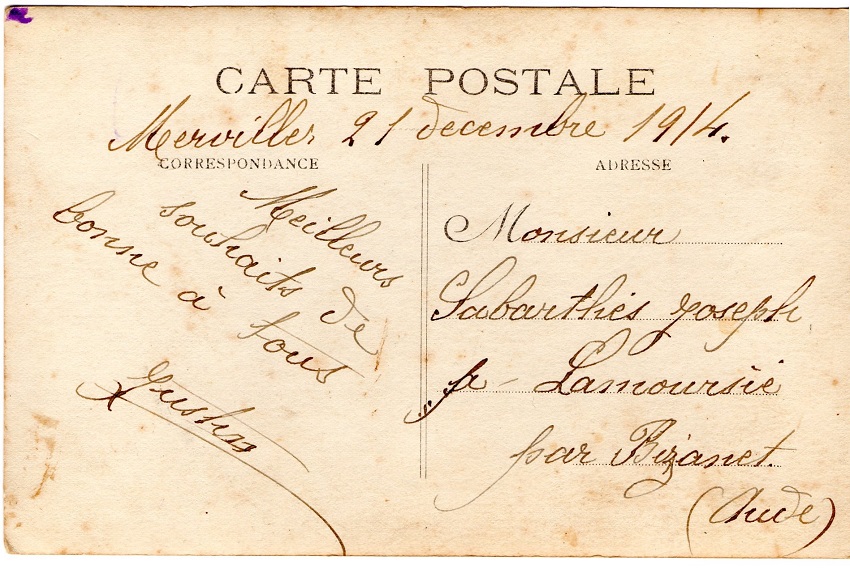 CARTE POSTALE
Merviller 21 decembre 1914.
CORRESPONDANCE
Meilleurs
souhaits de
bonne à tous
ADRESSE
Monsieur
Sabarthès Joseph
à Lamoursié
par Bizanet
(Aude)